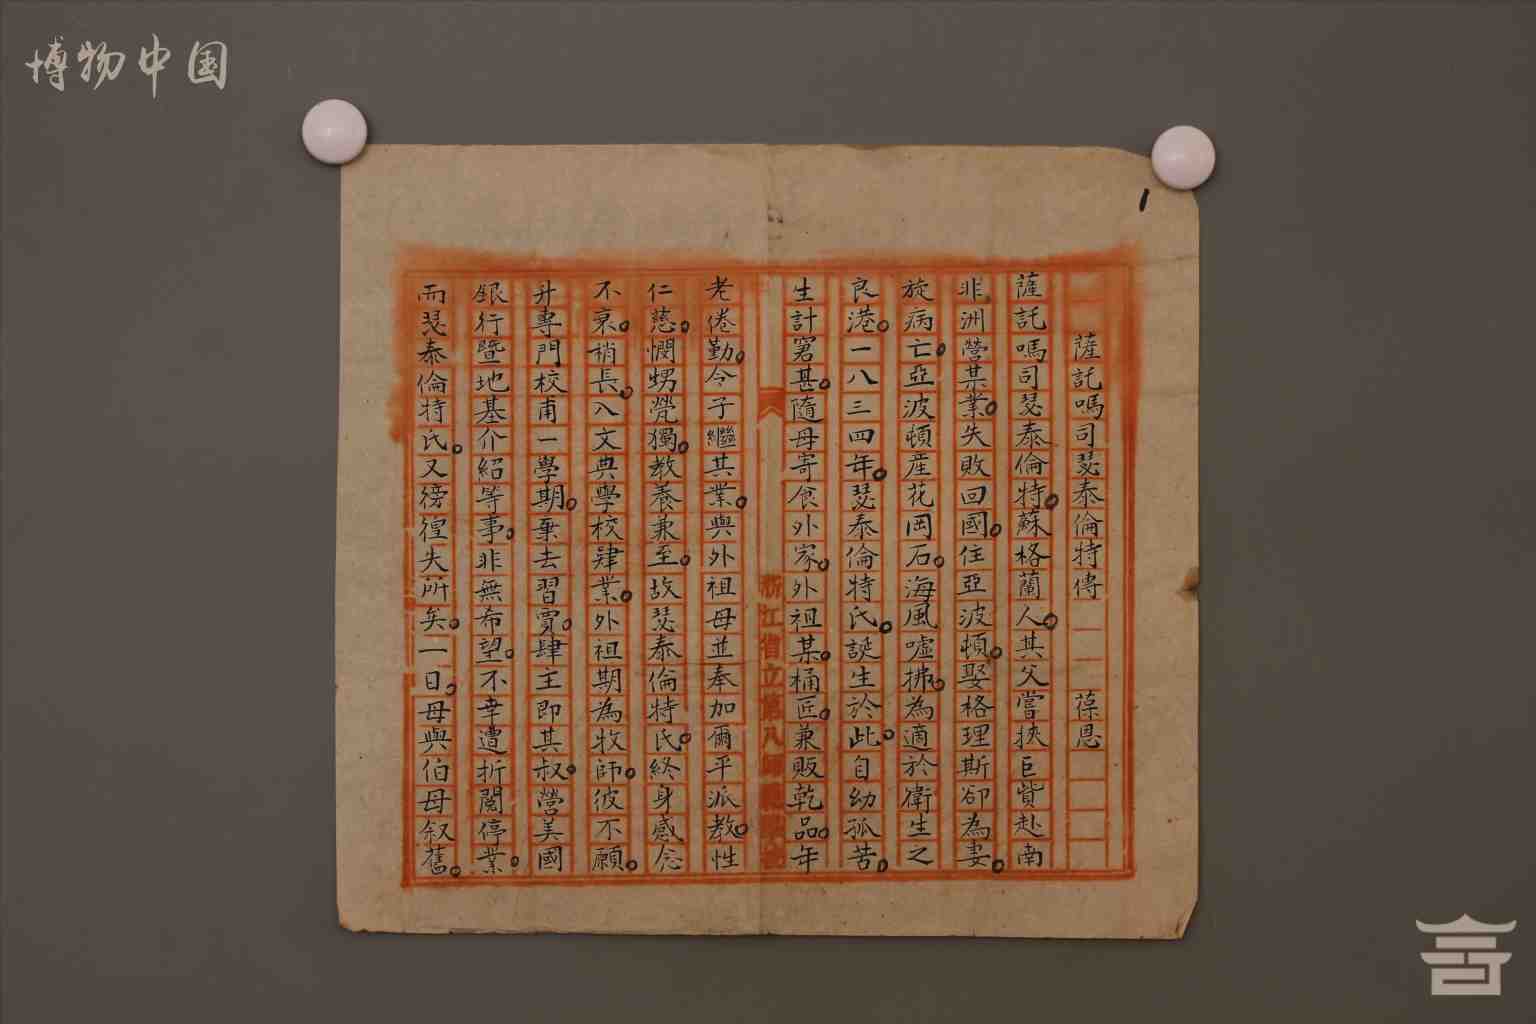 博物中国
薩託嗎司瑟泰倫特傳 葆恩
薩託嗎司瑟泰倫特。蘇格蘭人。其父嘗挾巨貲赴南
非洲營某業。失敗回國。住亞波頓。娶格理斯卻為妻。
旋病亡。亞波頓產花岡石。海風噓拂。為適於衛生之
良港。一八三四年。瑟泰倫特氏。誕生於此。自幼孤苦。
生計窘甚。隨母寄食外家。外祖某。桶匠。兼販乾品。年
浙江省立第八師範
老倦勤。令子繼其業。與外祖母並奉加爾平派教。性
仁慈。憫甥煢獨。教養兼至。故瑟泰倫特氏。終身感念
不衰。稍長。入文典學校肄業。外祖期為牧師。彼不願。
升專門校甫一學期。棄去習賈。肆主即其叔。營美國
銀行暨地基介紹等事。非無希望。不幸遭折閱停業。
而瑟泰倫特氏。又徬徨失所矣。一日。母與伯母叙舊。